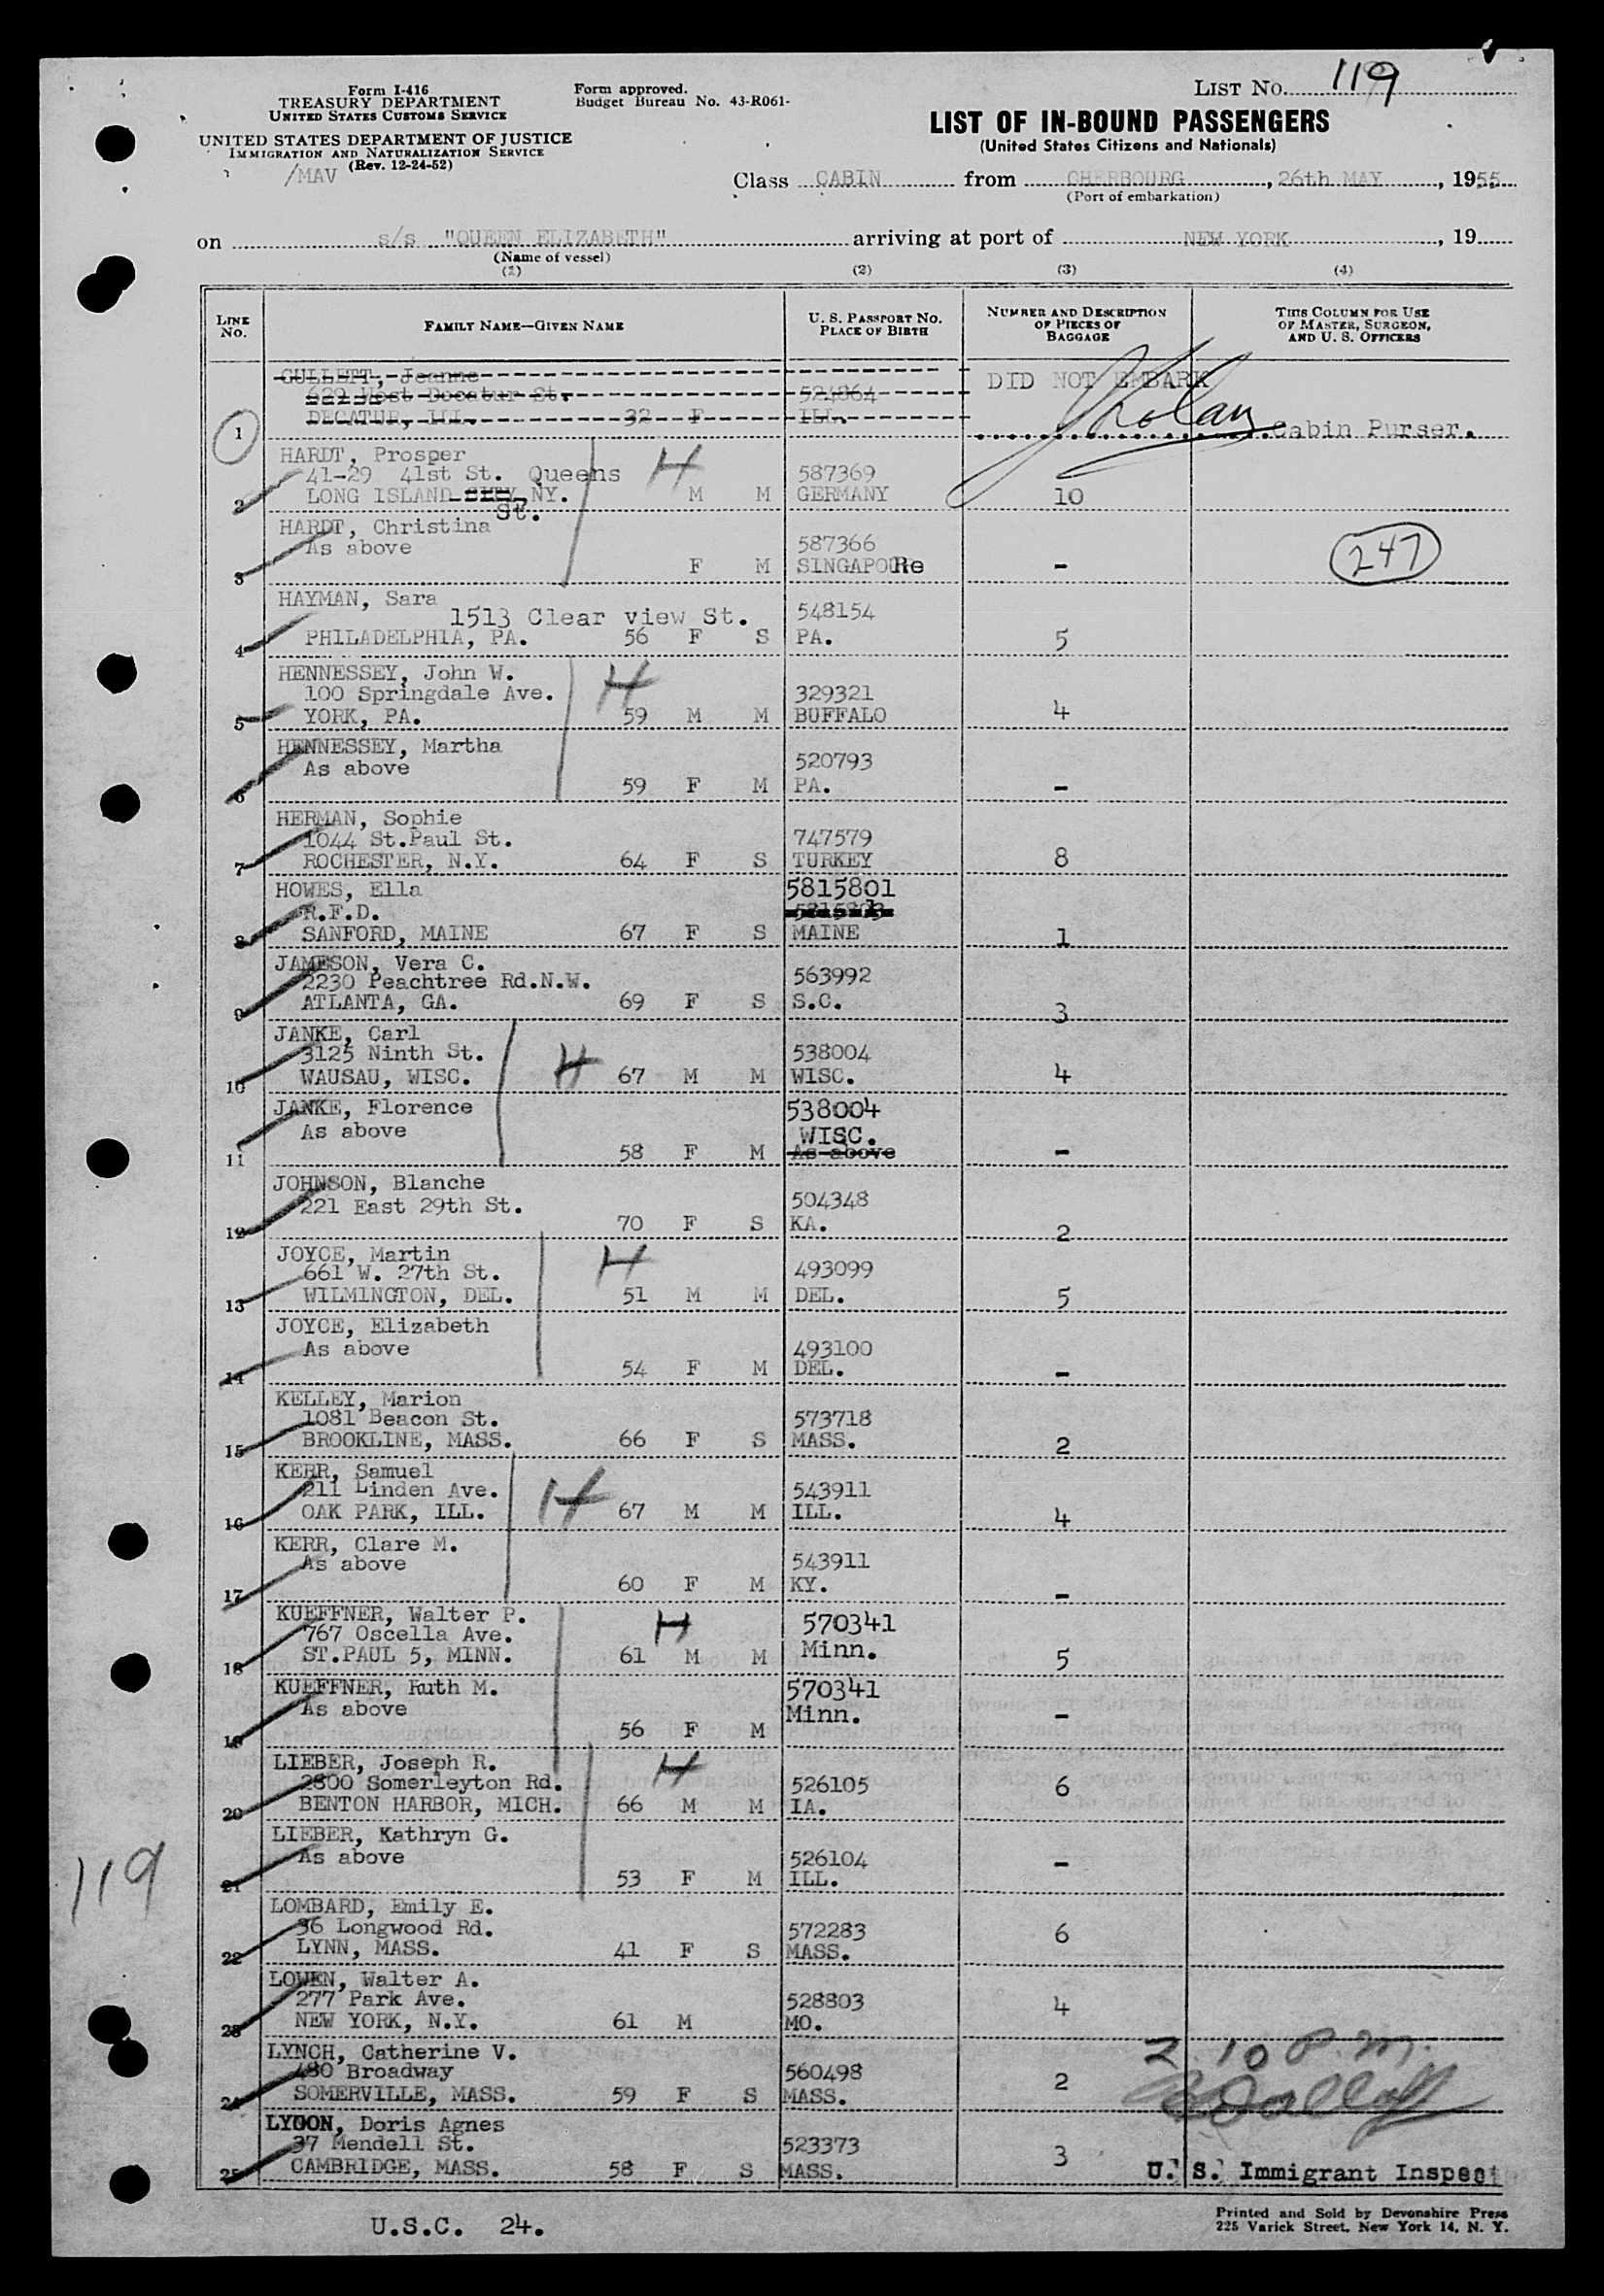 LIST No. 119
Form I-416
TREASURY DEPARTMENT
UNITED STATES CUSTOMS SERVICE
Form approved.
Budget Bureau No. 43-R061-
UNITED STATES DEPARTMENT OF JUSTICE
IMMIGRATION AND NATURALIZATION SERVICE
(Rev. 12-24-52)
/MAV
LIST OF IN-BOUND PASSENGERS
(United States Citizens and Nationals)
Class CABIN from CHERBOURG, 26th MAY, 1955
(Port of embarkation)
on s/s "QUEEN ELIZABETH" arriving at port of NEW YORK, 19
(Name of vessel)
(1) (2) (3) (4)
LINE No. FAMILY NAME—GIVEN NAME U. S. PASSPORT NO. PLACE OF BIRTH NUMBER AND DESCRIPTION OF PIECES OF BAGGAGE THIS COLUMN FOR USE OF MASTER, SURGEON, AND U. S. OFFICERS
GULLETT, Jeanne DID NOT EMBARK
629 West Decatur St. 524864
1 DECATUR, ILL. 32 F ILL. Cabin Purser.
HARDT, Prosper H
41-29 41st St. Queens 587369
2 LONG ISLAND CITY NY. M M GERMANY 10
St.
HARDT, Christina
As above 587366 247
3 F M SINGAPOURe -
HAYMAN, Sara
1513 Clear view St. 548154
4 PHILADELPHIA, PA. 56 F S PA. 5
HENNESSEY, John W. H
100 Springdale Ave. 329321
5 YORK, PA. 59 M M BUFFALO 4
HENNESSEY, Martha
As above 520793
6 59 F M PA. -
HERMAN, Sophie
1044 St.Paul St. 747579
7 ROCHESTER, N.Y. 64 F S TURKEY 8
HOWES, Ella 5815801
R.F.D.
8 SANFORD, MAINE 67 F S MAINE 1
JAMESON, Vera C.
2230 Peachtree Rd.N.W. 563992
9 ATLANTA, GA. 69 F S S.C. 3
JANKE, Carl H
3125 Ninth St. 538004
10 WAUSAU, WISC. 67 M M WISC. 4
JANKE, Florence 538004
As above WISC.
11 58 F M As above -
JOHNSON, Blanche
221 East 29th St. 504348
12 70 F S KA. 2
JOYCE, Martin H
661 W. 27th St. 493099
13 WILMINGTON, DEL. 51 M M DEL. 5
JOYCE, Elizabeth
As above 493100
14 54 F M DEL. -
KELLEY, Marion
1081 Beacon St. 573718
15 BROOKLINE, MASS. 66 F S MASS. 2
KERR, Samuel H
211 Linden Ave. 543911
16 OAK PARK, ILL. 67 M M ILL. 4
KERR, Clare M.
As above 543911
17 60 F M KY. -
KUEFFNER, Walter P. H
767 Oscella Ave. 570341
18 ST.PAUL 5, MINN. 61 M M Minn. 5
KUEFFNER, Ruth M. 570341
As above Minn.
19 56 F M -
LIEBER, Joseph R. H
2800 Somerleyton Rd. 526105
20 BENTON HARBOR, MICH. 66 M M IA. 6
LIEBER, Kathryn G.
As above 526104
21 53 F M ILL. -
119
LOMBARD, Emily E.
36 Longwood Rd. 572283
22 LYNN, MASS. 41 F S MASS. 6
LOWEN, Walter A.
277 Park Ave. 528803
23 NEW YORK, N.Y. 61 M MO. 4
LYNCH, Catherine V. 2 10 P.M.
480 Broadway 560498
24 SOMERVILLE, MASS. 59 F S MASS. 2
LYDON, Doris Agnes
37 Mendell St. 523373
25 CAMBRIDGE, MASS. 58 F S MASS. 3
U. S. Immigrant Inspect
U.S.C. 24.
Printed and Sold by Devonshire Press
225 Varick Street, New York 14, N. Y.